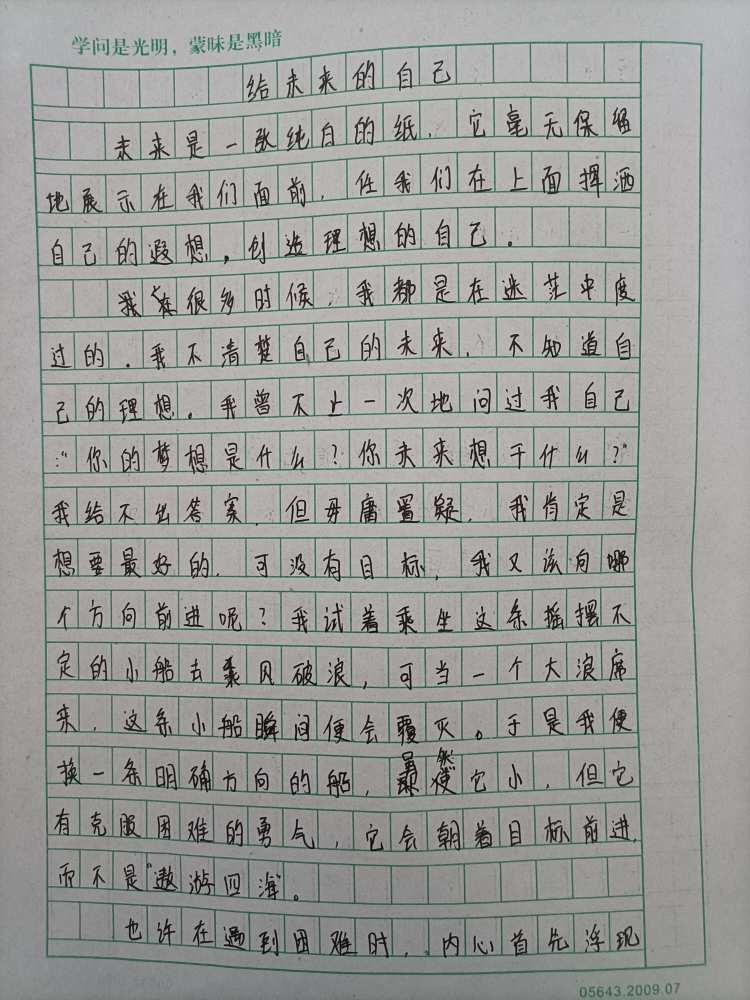 学问是光明，蒙昧是黑暗
给未来的自己
未来是一张纯白的纸，它毫无保留
地展示在我们面前，任我们在上面挥洒
自己的遐想，创造理想的自己。
我在很多时候，我都是在迷茫中度
过的，我不清楚自己的未来，不知道自
己的理想。我曾不止一次地问过我自己
:“你的梦想是什么？你未来想干什么？”
我给不出答案，但毋庸置疑，我肯定是
想要最好的，可没有目标，我又该向哪
个方向前进呢？我试着乘坐这条摇摆不
定的小船去乘风破浪，可当一个大浪席
来，这条小船瞬间便会覆灭。于是我便
换一条明确方向的船，虽然它小，但它
有克服困难的勇气，它会朝着目标前进，
而不是“遨游四海”。
也许在遇到困难时，内心首先浮现
05643.2009.07